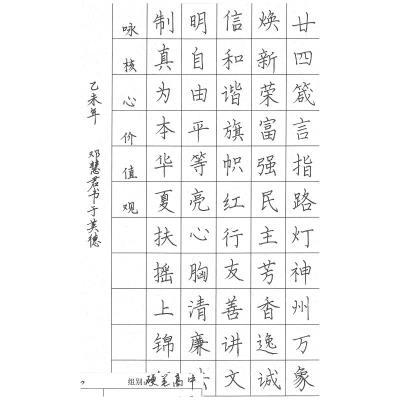 廿四箴言指路灯神州万象
焕新荣富强民主芳香逸诚
信和谐旗帜红行友善讲文
明自由平等亮心胸清廉
制真为本华夏扶摇上锦
咏核心价值观
乙未年 邓慧君书于英德
组别 硬笔高中